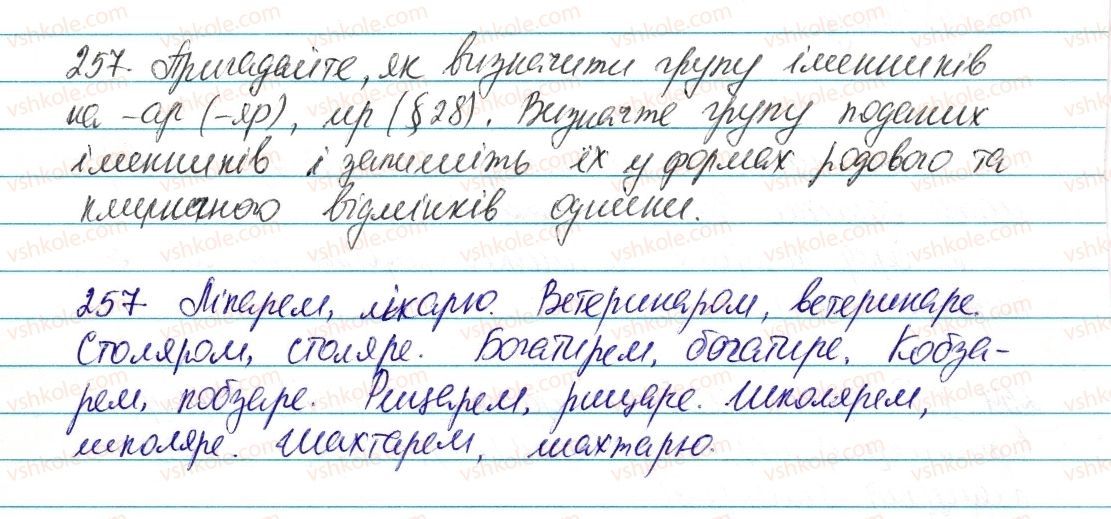 257. Пригадайте, як визначити групу іменників
на -ар (-яр), ир (§ 28). Визначте групу поданих
іменників і запишіть їх у формах родового та
кличного відмінків однини.
257 Лікарем, лікарю. Ветеринаром, ветеринаре.
Столяром, столяре. Богатирем, богатире. Кобза-
рем, кобзаре. Рицарем, рицаре. Школярем,
школяре. Шахтарем, шахтарю.